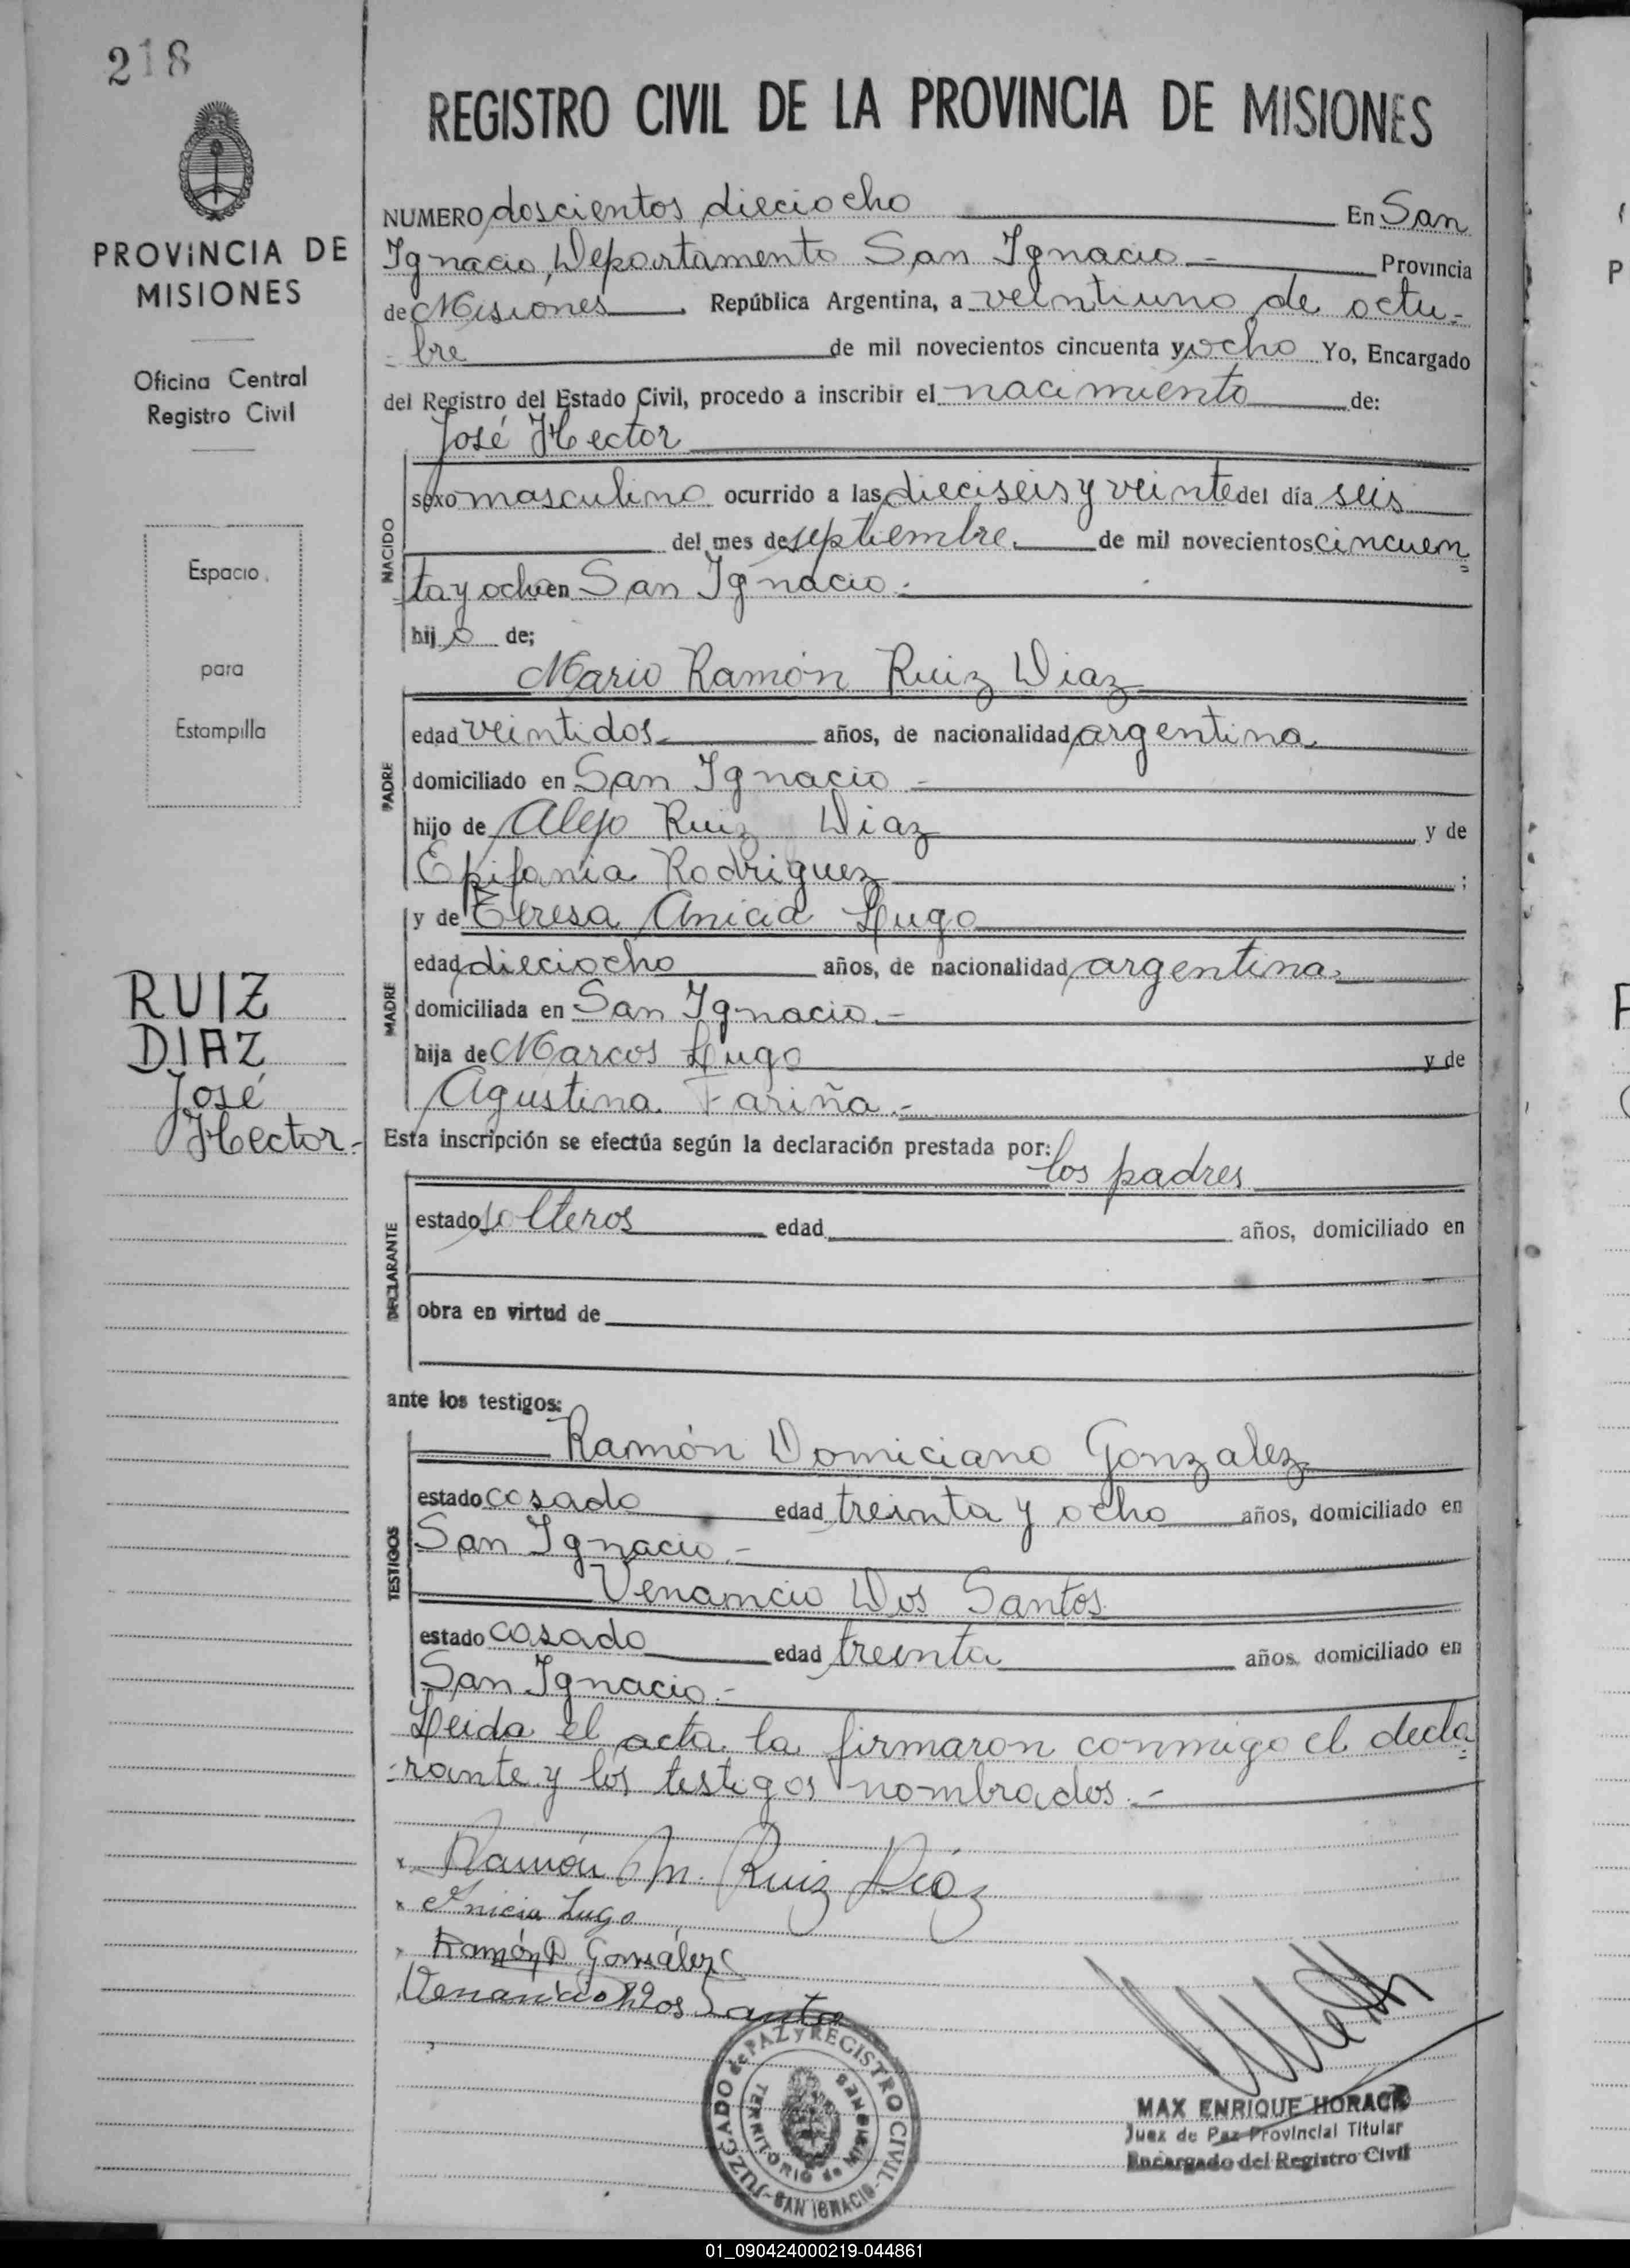 218
PROVINCIA DE
MISIONES
Oficina Central
Registro Civil
Espacio
para
Estampilla
RUIZ
DIAZ
José
Hector.-
REGISTRO CIVIL DE LA PROVINCIA DE MISIONES
NUMERO doscientos dieciocho En San
Ignacio, Departamento San Ignacio.- Provincia
de Misiones. República Argentina, a veintiuno de octu-
-bre de mil novecientos cincuenta y ocho Yo, Encargado
del Registro del Estado Civil, procedo a inscribir el nacimiento de:
José Hector
NACIDO
sexo masculino ocurrido a las dieciseis y veinte del día seis
del mes de septiembre de mil novecientos cincuen=
ta y ocho en San Ignacio.-
hijo de;
Mario Ramón Ruiz Diaz
PADRE
edad veintidos años, de nacionalidad argentina
domiciliado en San Ignacio.-
hijo de Alejo Ruiz Diaz y de
Epifania Rodriguez ;
MADRE
y de Teresa Anicia Lugo
edad dieciocho años, de nacionalidad argentina.
domiciliada en San Ignacio.-
hija de Marcos Lugo y de
Agustina Fariña.-
Esta inscripción se efectúa según la declaración prestada por:
los padres
DECLARANTE
estado solteros edad años, domiciliado en
obra en virtud de
ante los testigos:
TESTIGOS
Ramón Domiciano Gonzalez
estado casado edad treinta y ocho años, domiciliado en
San Ignacio.-
Venancio Dos Santos
estado casado edad treinta años, domiciliado en
San Ignacio.-
Leida el acta la firmaron conmigo el decla=
-rante y los testigos nombrados.-
x Ramón M. Ruiz Díaz
x Anicia Lugo
x Ramón D. González
Venancio Dos Santo
JUZGADO de PAZ y REGISTRO CIVIL - SAN IGNACIO -
TERRITORIO de MISIONES
MAX ENRIQUE HORACK
Juez de Paz Provincial Titular
Encargado del Registro Civil
01_090424000219-044861